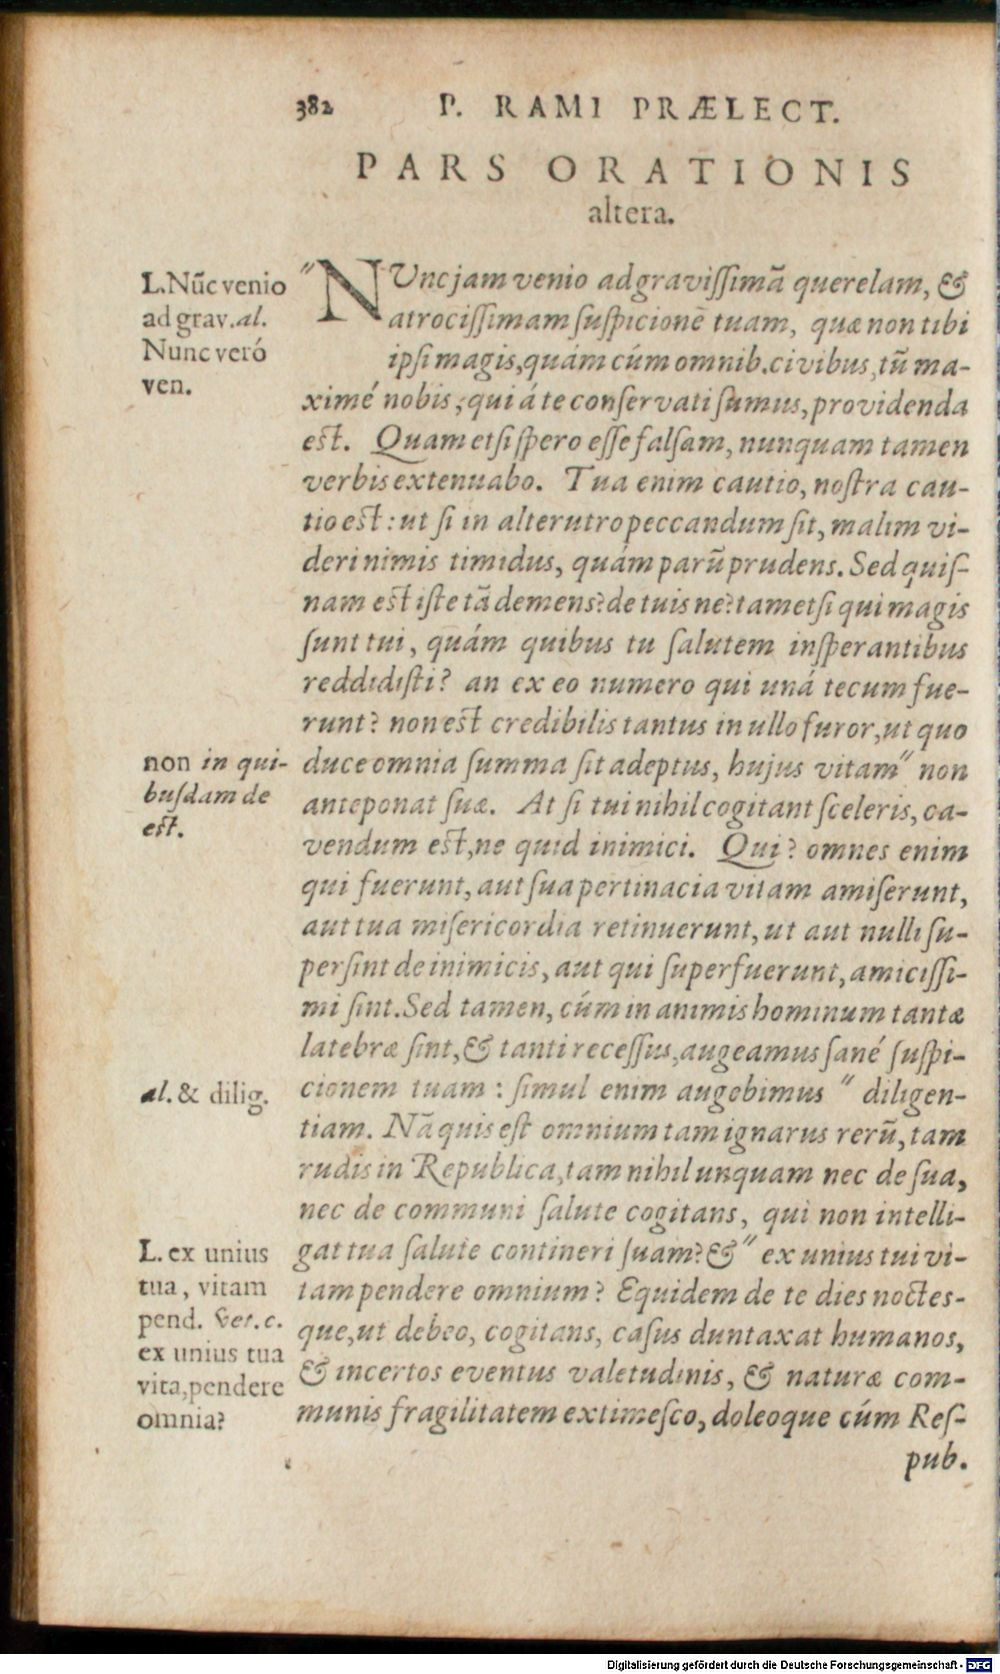 382 P. RAMI PRÆLECT.
PARS ORATIONIS
altera.
L. Nũc venio
ad grav. al.
Nunc veró
ven.
" NUnc jam venio ad gravissimã querelam, &
atrocissimam suspicionẽ tuam, quæ non tibi
ipsi magis, quám cúm omnib. civibus, tũ ma-
ximé nobis, qui á te conservati sumus, providenda
est. Quam etsi spero esse falsam, nunquam tamen
verbis extenuabo. Tua enim cautio, nostra cau-
tio est: ut si in alterutro peccandum sit, malim vi-
deri nimis timidus, quám parũ prudens. Sed quis-
nam est iste tã demens? de tuis ne? tametsi qui magis
sunt tui, quám quibus tu salutem insperantibus
reddidisti? an ex eo numero qui uná tecum fue-
runt? non est credibilis tantus in ullo furor, ut quo
non in qui-
busdam de
est.
duce omnia summa sit adeptus, hujus vitam " non
anteponat suæ. At si tui nihil cogitant sceleris, ca-
vendum est, ne quid inimici. Qui? omnes enim
qui fuerunt, aut sua pertinacia vitam amiserunt,
aut tua misericordia retinuerunt, ut aut nulli su-
persint de inimicis, aut qui superfuerunt, amicissi-
mi sint. Sed tamen, cúm in animis hominum tantæ
latebræ sint, & tanti recessus, augeamus sané suspi-
al. & dilig.
cionem tuam: simul enim augebimus " diligen-
tiam. Nã quis est omnium tam ignarus rerũ, tam
rudis in Republica, tam nihil unquam nec de sua,
nec de communi salute cogitans, qui non intelli-
L. ex unius
tua, vitam
pend. Vet. c.
ex unius tua
vita, pendere
omnia?
gat tua salute contineri suam? & " ex unius tui vi-
tam pendere omnium? Equidem de te dies noctes-
que, ut debeo, cogitans, casus duntaxat humanos,
& incertos eventus valetudinis, & naturæ com-
munis fragilitatem extimesco, doleoque cúm Res-
pub.
Digitalisierung gefördert durch die Deutsche Forschungsgemeinschaft - DFG